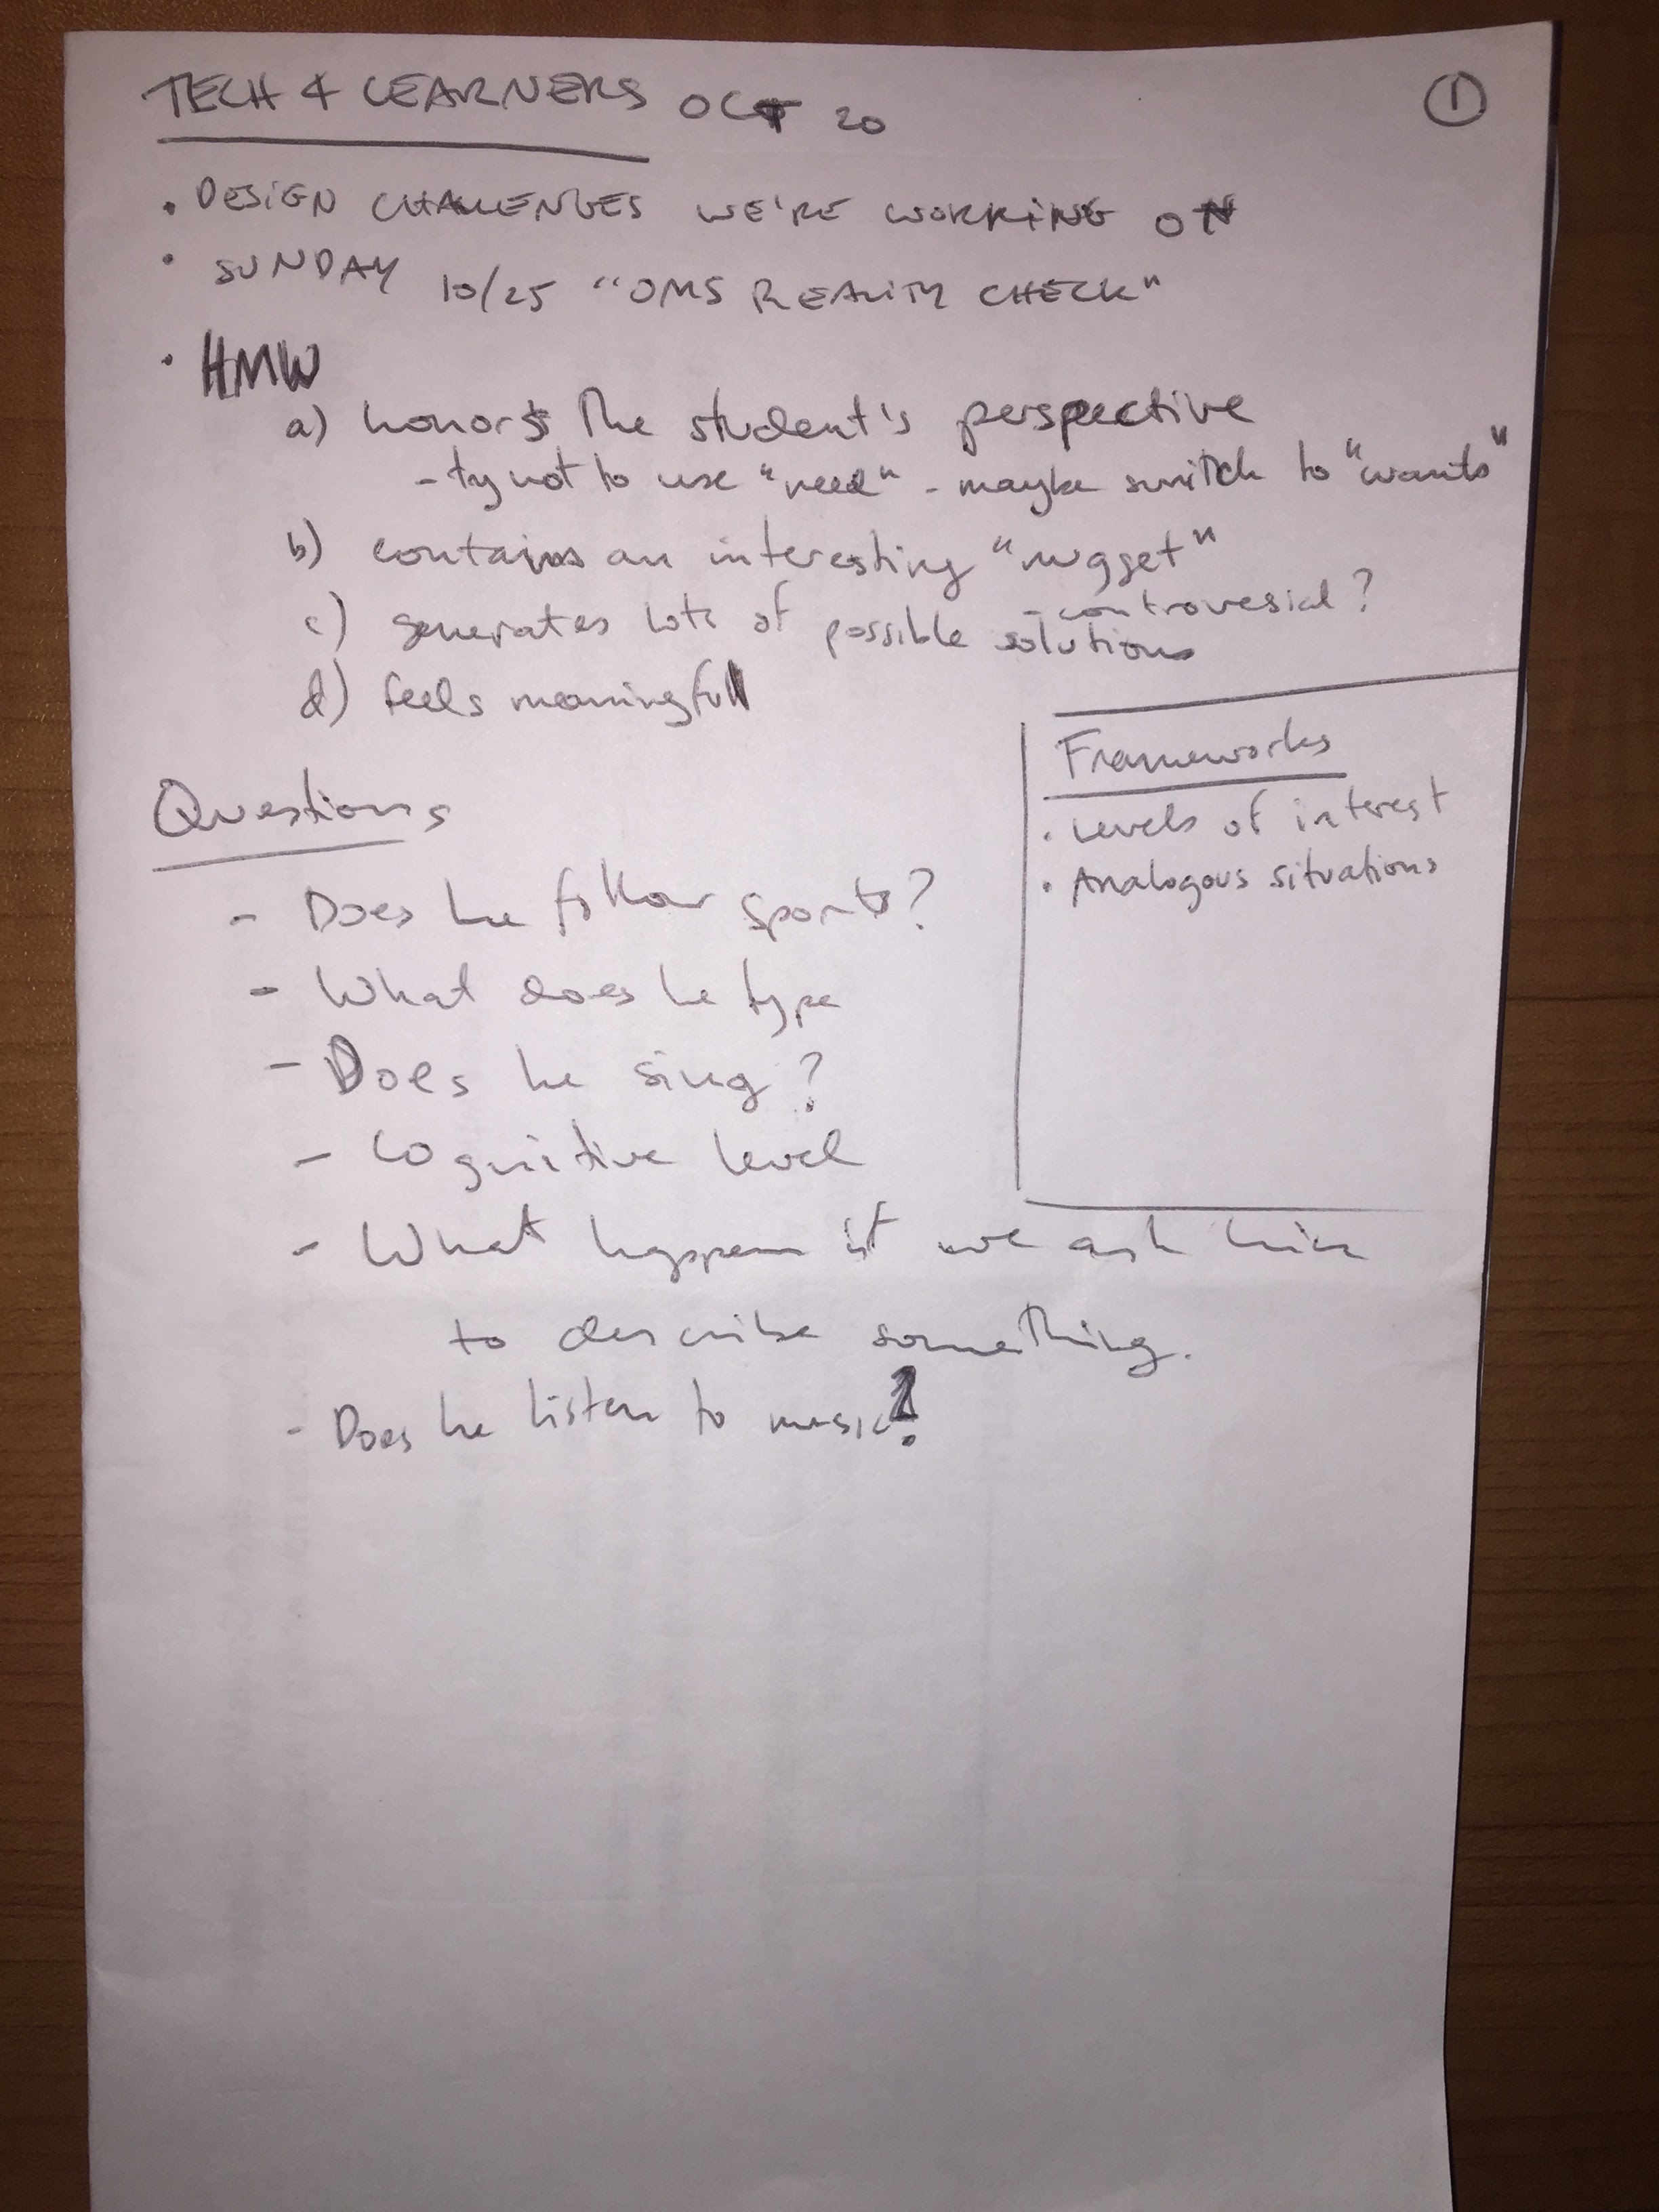 TECH & LEARNERS OCT 20
①
• DESIGN CHALLENGES WE'RE WORKING ON
• SUNDAY 10/25 "OMS REALITY CHECK"
• HMW
a) honors the student's perspective
- try not to use "need" - maybe switch to "wants"
b) contains an interesting "nugget"
- controvesial?
c) generates lots of possible solutions
d) feels meaningful
Frameworks
• Levels of interest
• Analogous situations
Questions
- Does he follow sports?
- What does he type
- Does he sing?
- Cognitive level
- What happens if we ask him
to describe something.
- Does he listen to music?